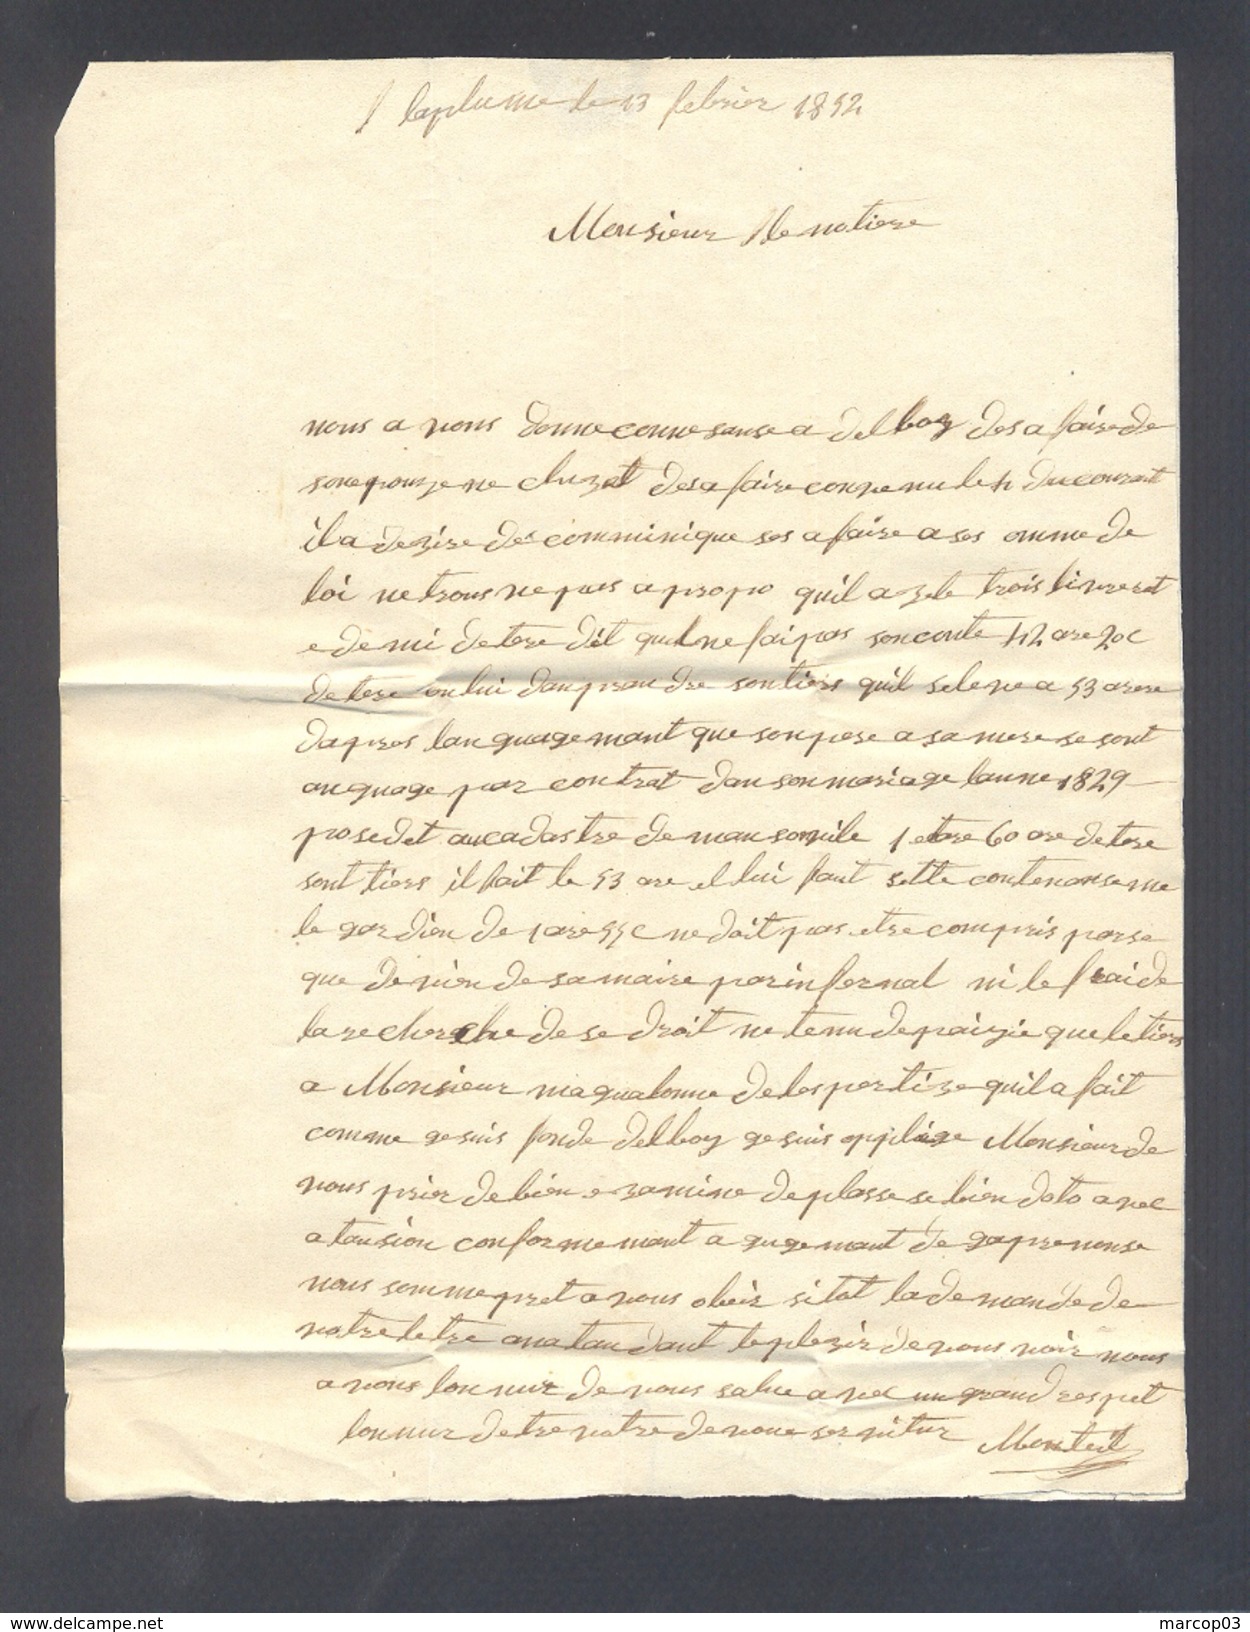 laplume le 13 febrier 1852
Monsieur le notiere
nous a vons donne connesanse a delboy des a faire de
son epouze ne cluzet des a faire convenu le 4 du courant
il a dezire des comminique ses a faire a ses omme de
loi ne trouve pas a propo quil a zele trois livre et
e demi de tere dit quil ne fai pas son conte 42 are 20c
de tere on lui dan prandre son tiers quil seleve a 53 arere
dapres languagemant que son pere a sa mere se sont
anguage par contrat dan son mariage lanne 1829
posedet au cadastre de mansonvile 1 etare 60 are de tere
sont tiers il fait le 53 are el lui faut sette contenanse me
le gardien de 1 are 55c ne doit pas etre compris parse
que de vien de sa maire par infernal ni le frai de
la recherche de se droit ne tenu de paizie que le tiers
a Monsieur magualonne de lespertize quil a fait
comme ge suis fonde delboy ge suis opplige Monsieur de
vous prier de bien ezamine de plasse se bien doto avec
atansion conformemant a gugemant de gaprenonse
nous somme pret a vous obeir sitot la demande de
votre letre an atandant le plezir de vous voir nous
avons lonnur de vous salue avec un grand respet
lonnur detre votre devoue servitur Monteil
marcop03
www.delcampe.net